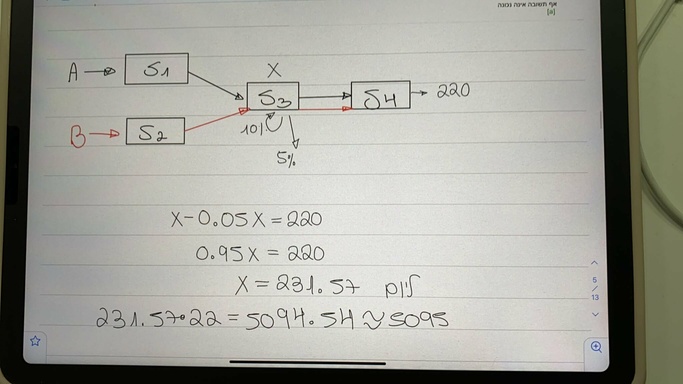 אף תשובה אינה נכונה
A → S1
X
S3 → S4 → 220
B → S2
10%
5%
X-0.05X=220
0.95X=220
X=231.57 ליום
231.57•22=5094.54≈5095
5
/
13